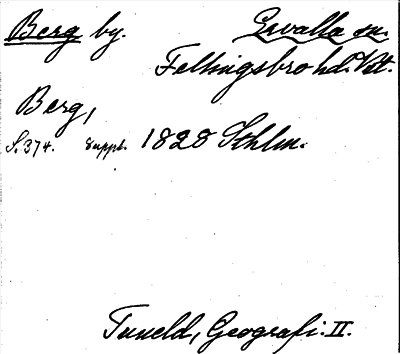 Berg by. Ervalla sn.
Fellingsbro hd. Vst.
Berg,
S. 374. Suppl. 1828 Sthlm.
Tuneld, Geografi. II.